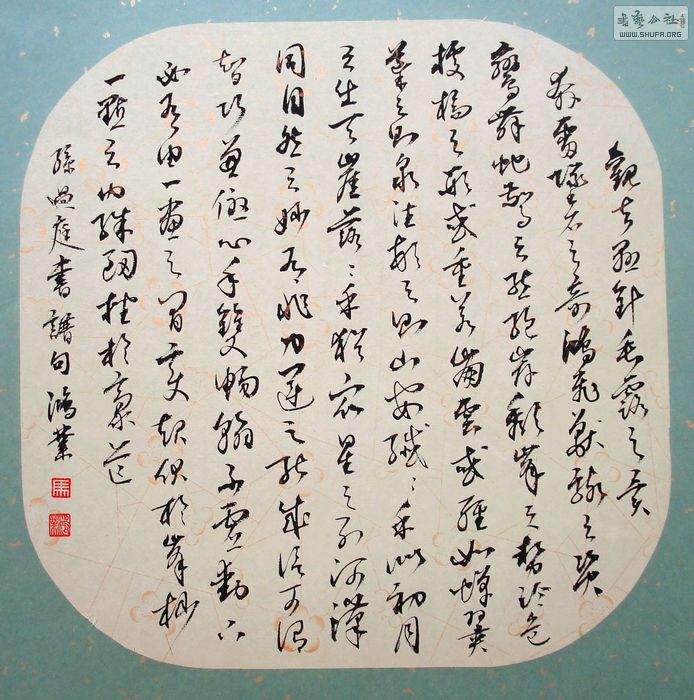 觀夫懸針垂露之異
奔雷墜石之奇鴻飛獸駭之資
鸞舞蛇驚之態絕岸頹峯之勢臨危
據槁之形或重若崩雲或輕如蟬翼
導之則泉注頓之則山安纖〻乎似初月
之出天崖落〻乎猶衆星之列河漢
同自然之妙有非力運之能成信可謂
智巧兼優心手雙暢翰不虛動下
必有由一畫之間變起伏於峯杪
一點之內殊衂挫於豪芒
孫過庭書譜句鴻業
馬
書藝公社
WWW.SHUFA.ORG